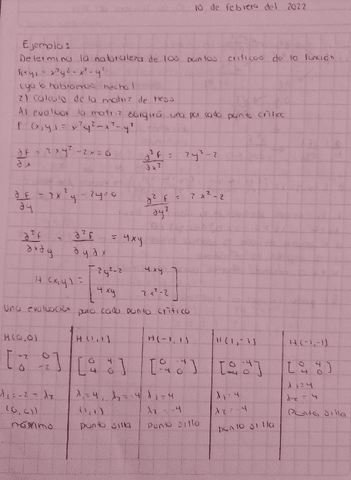 10 de febrero del 2022
Ejemplo:
Determina la naturaleza de los puntos críticos de la función
f(x,y) = x²y² - x² - y²
(ya lo habíamos hecho)
2) Cálculo de la matriz de Hess
Al evaluar la matriz una por cada punto crítico
f (x,y) = x²y² - x² - y²
∂f/∂x = 2xy² - 2x = 0    ∂²f/∂x² = 2y² - 2
∂f/∂y = 2x²y - 2y = 0    ∂²f/∂y² = 2x² - 2
∂²f/∂x∂y = ∂²f/∂y∂x = 4xy
H(x,y) = [2y²-2  4xy
4xy  2x²-2]
Una evaluación para cada punto crítico
H(0,0) | H(1,1) | H(-1,1) | H(1,-1) | H(-1,-1)
[-2 0 | [0 4 | [0 -4 | [0 -4 | [0 4
0 -2] | 4 0] | -4 0] | -4 0] | 4 0]
λ₁ = -2 = λ₂ | λ₁ = 4, λ₂ = -4 | λ₁ = 4 | λ₁ = 4 | λ₁ = 4
(0,0) | (1,1) | λ₂ = -4 | λ₂ = -4 | λ₂ = 4
máximo | punto silla | punto silla | punto silla | punto silla